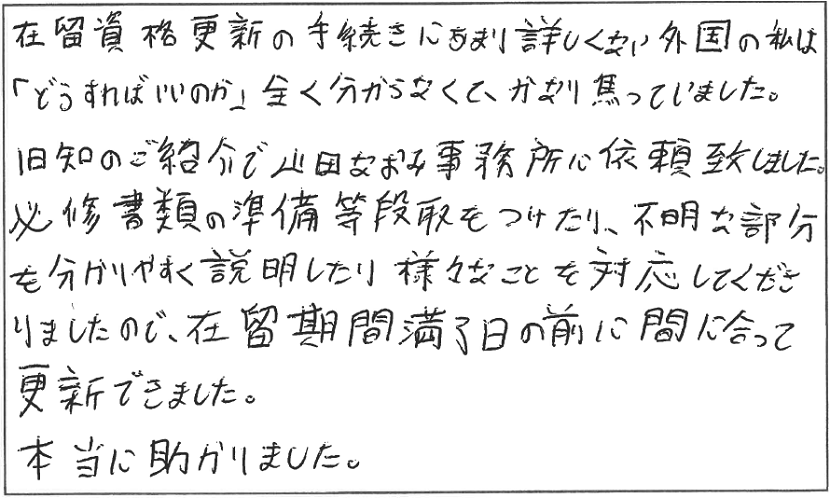 在留資格更新の手続きにあまり詳しくない外国の私は
「どうすればいいのか」全く分からなくて、かなり焦っていました。
旧知のご紹介で山田なおみ事務所に依頼致しました。
必修書類の準備等段取をつけたり、不明な部分
を分かりやすく説明したり様々なことを対応してくださ
りましたので、在留期間満了日の前に間に合って
更新できました。
本当に助かりました。